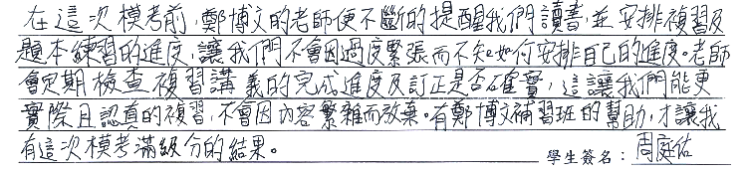 在這次模考前,鄭博文的老師便不斷的提醒我們讀書,並安排複習及
題本練習的進度,讓我們不會因過度緊張而不知如何安排自己的進度。老師
會定期檢查複習講義的完成進度及訂正是否確實,這讓我們能更
實際且認真的複習,不會因內容繁雜而放棄。有鄭博文補習班的幫助,才讓我
有這次模考滿級分的結果。
學生簽名:周庭佑